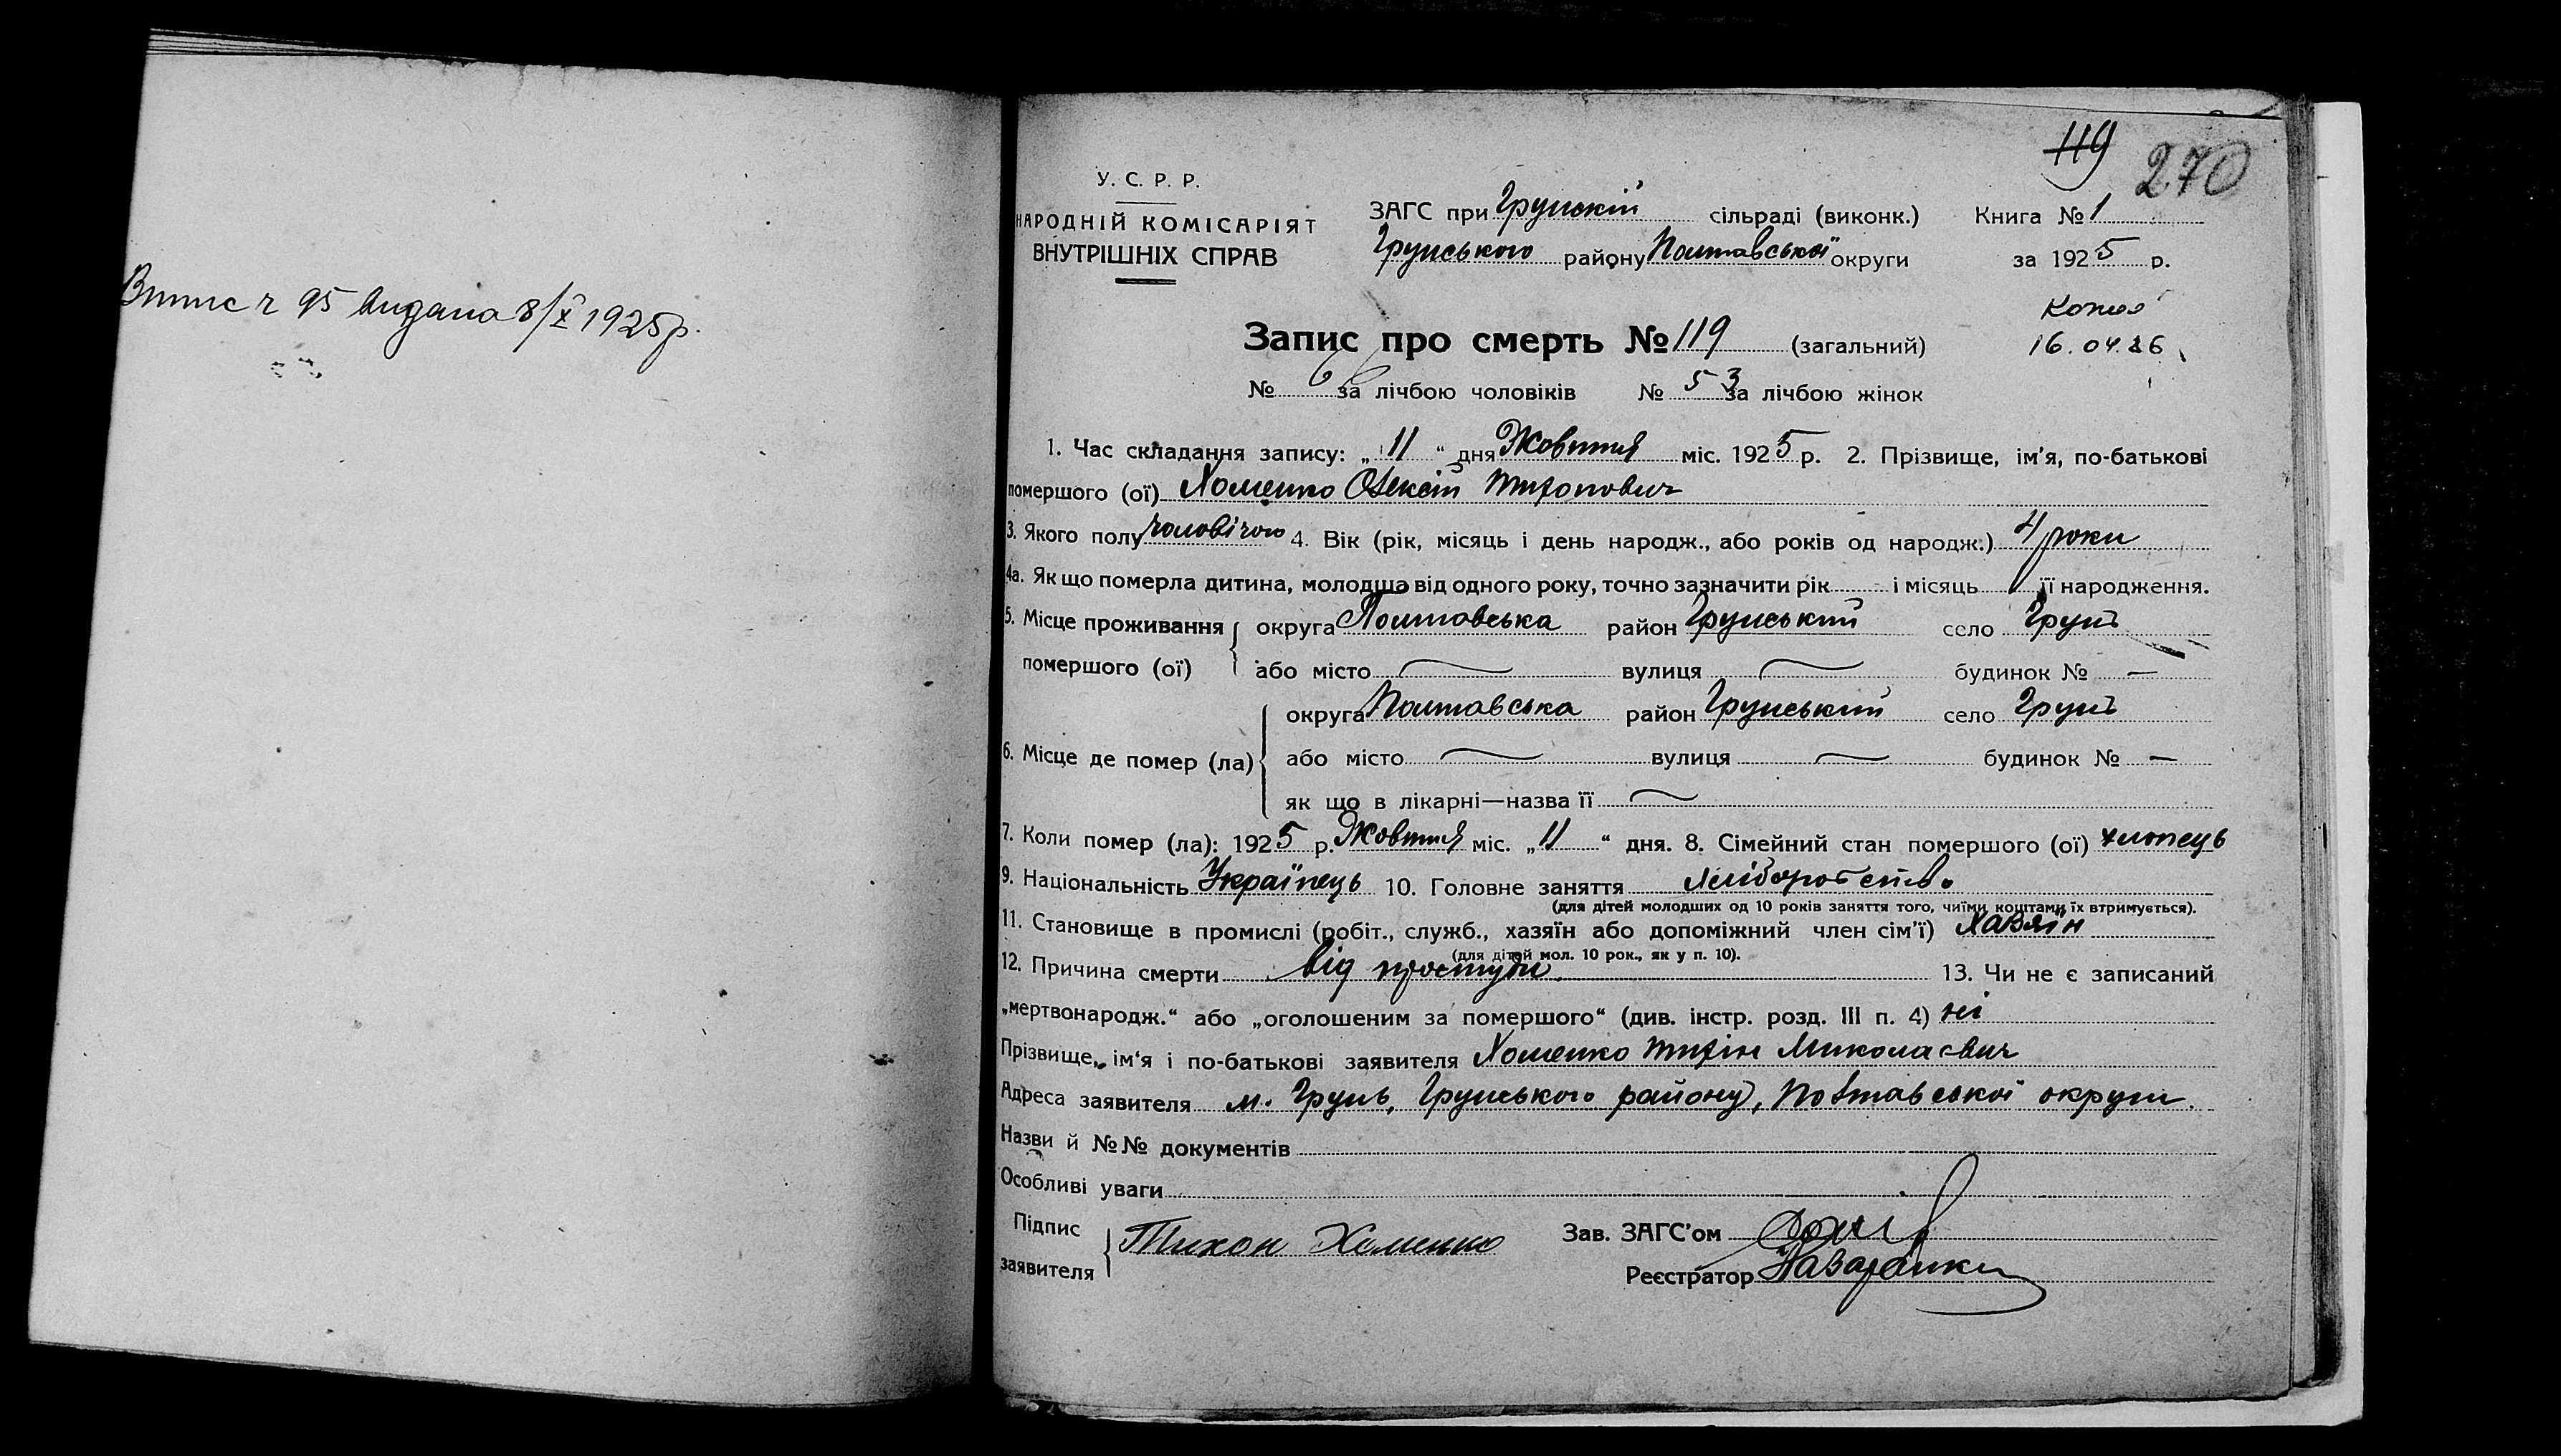 Витис ч 95 видана 8/X 1925р.
119 270
У. С. Р. Р.
НАРОДНІЙ КОМІСАРІЯТ
ВНУТРІШНІХ СПРАВ
ЗАГС при Грунській сільраді (виконк.) Книга № 1
Грунського району Полтавської округи за 1925 р.
Запис про смерть № 119 (загальний)
16.04.26
№ 66 за лічбою чоловіків № 53 за лічбою жінок
1. Час складання запису: „11“ дня Жовтня міс. 1925 р. 2. Прізвище, ім'я, по-батькові
помершого (ої) Хоменко Олексій Тихонович
3. Якого полу чоловічого 4. Вік (рік, місяць і день народж., або років од народж.) 4 роки
4а. Як що померла дитина, молодша від одного року, точно зазначити рік і місяць її народження.
5. Місце проживання помершого (ої) округа Полтавська район Грунський село Грунь
або місто — вулиця — будинок № —
6. Місце де помер (ла) округа Полтавська район Грунський село Грунь
або місто — вулиця — будинок № —
як що в лікарні—назва її —
7. Коли помер (ла): 1925 р. Жовтня міс. „11“ дня. 8. Сімейний стан помершого (ої) хлопець
9. Національність Українець 10. Головне заняття Хліборобство
(для дітей молодших од 10 років заняття того, чиїми коштами їх втримується).
11. Становище в промислі (робіт., служб., хазяїн або допоміжний член сім'ї) Хазяїн
(для дітей мол. 10 рок., як у п. 10).
12. Причина смерти від простуди 13. Чи не є записаний
„мертвонародж.“ або „оголошеним за помершого“ (див. інстр. розд. III п. 4) ні
Прізвище, ім'я і по-батькові заявителя Хоменко Тихін Миколаєвич
Адреса заявителя м. Грунь, Грунського району, Полтавської округи.
Назви й №№ документів
Особливі уваги
Підпис заявителя Тихон Хоменко Зав. ЗАГС'ом
Реєстратор